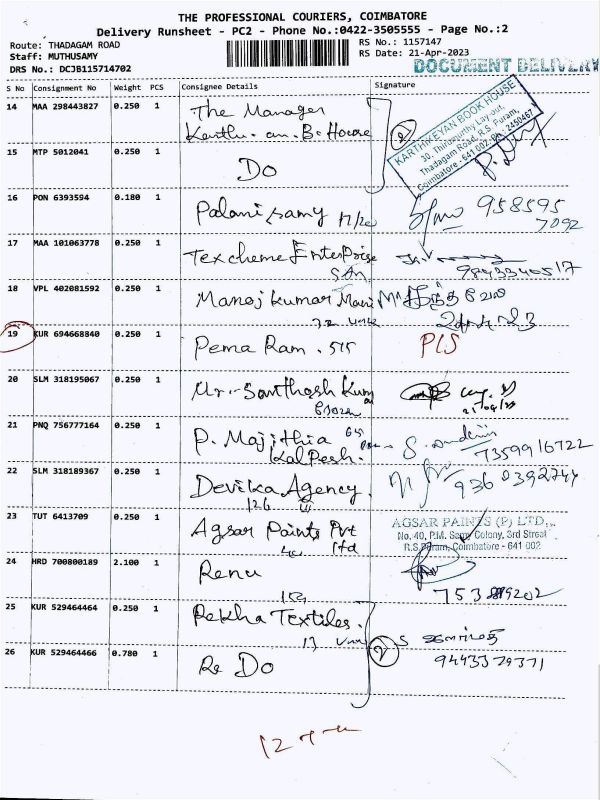 THE PROFESSIONAL COURIERS, COIMBATORE
Delivery Runsheet - PC2 - Phone No.:0422-3505555 - Page No.:2
Route: THADAGAM ROAD
Staff: MUTHUSAMY
DRS No.: DCJB115714702
RS No.: 1157147
RS Date: 21-Apr-2023
DOCUMENT DELIVERY
S No Consignment No Weight PCS Consignee Details Signature
14 MAA 298443827 0.250 1 The Manager
15 MTP 5012041 0.250 1 Do
KARTHIKEYAN BOOK HOUSE
30, Thiruvalluvar Lay-out,
Thadagam Road, R.S. Puram,
Coimbatore - 641 002. Ph: 2450467
16 PON 6393594 0.180 1 Palani samy 958595
7092
17 MAA 101063778 0.250 1 Texcheme Enterprise
9843340517
18 VPL 402081592 0.250 1 Manoj Kumar Mani
19 KUR 694668840 0.250 1 Pema Ram . 515 PLS
20 SLM 318195067 0.250 1 Mr. Santhosh Kumar
21/04/23
21 PNQ 756777164 0.250 1 P. Majithia
Kalpesh. 7359916722
22 SLM 318189367 0.250 1 Devika Agency. 9360392744
126
23 TUT 6413709 0.250 1 Agsar Paints Pvt
ltd
AGSAR PAINTS (P) LTD.,
No. 40, P.M. Samy Colony, 3rd Street
R.S.Puram, Coimbatore - 641 002
24 HRD 700800189 2.100 1 Renu
25 KUR 529464464 0.250 1 Rekha Textiles.
13
26 KUR 529464466 0.780 1 Do 2 9443379371